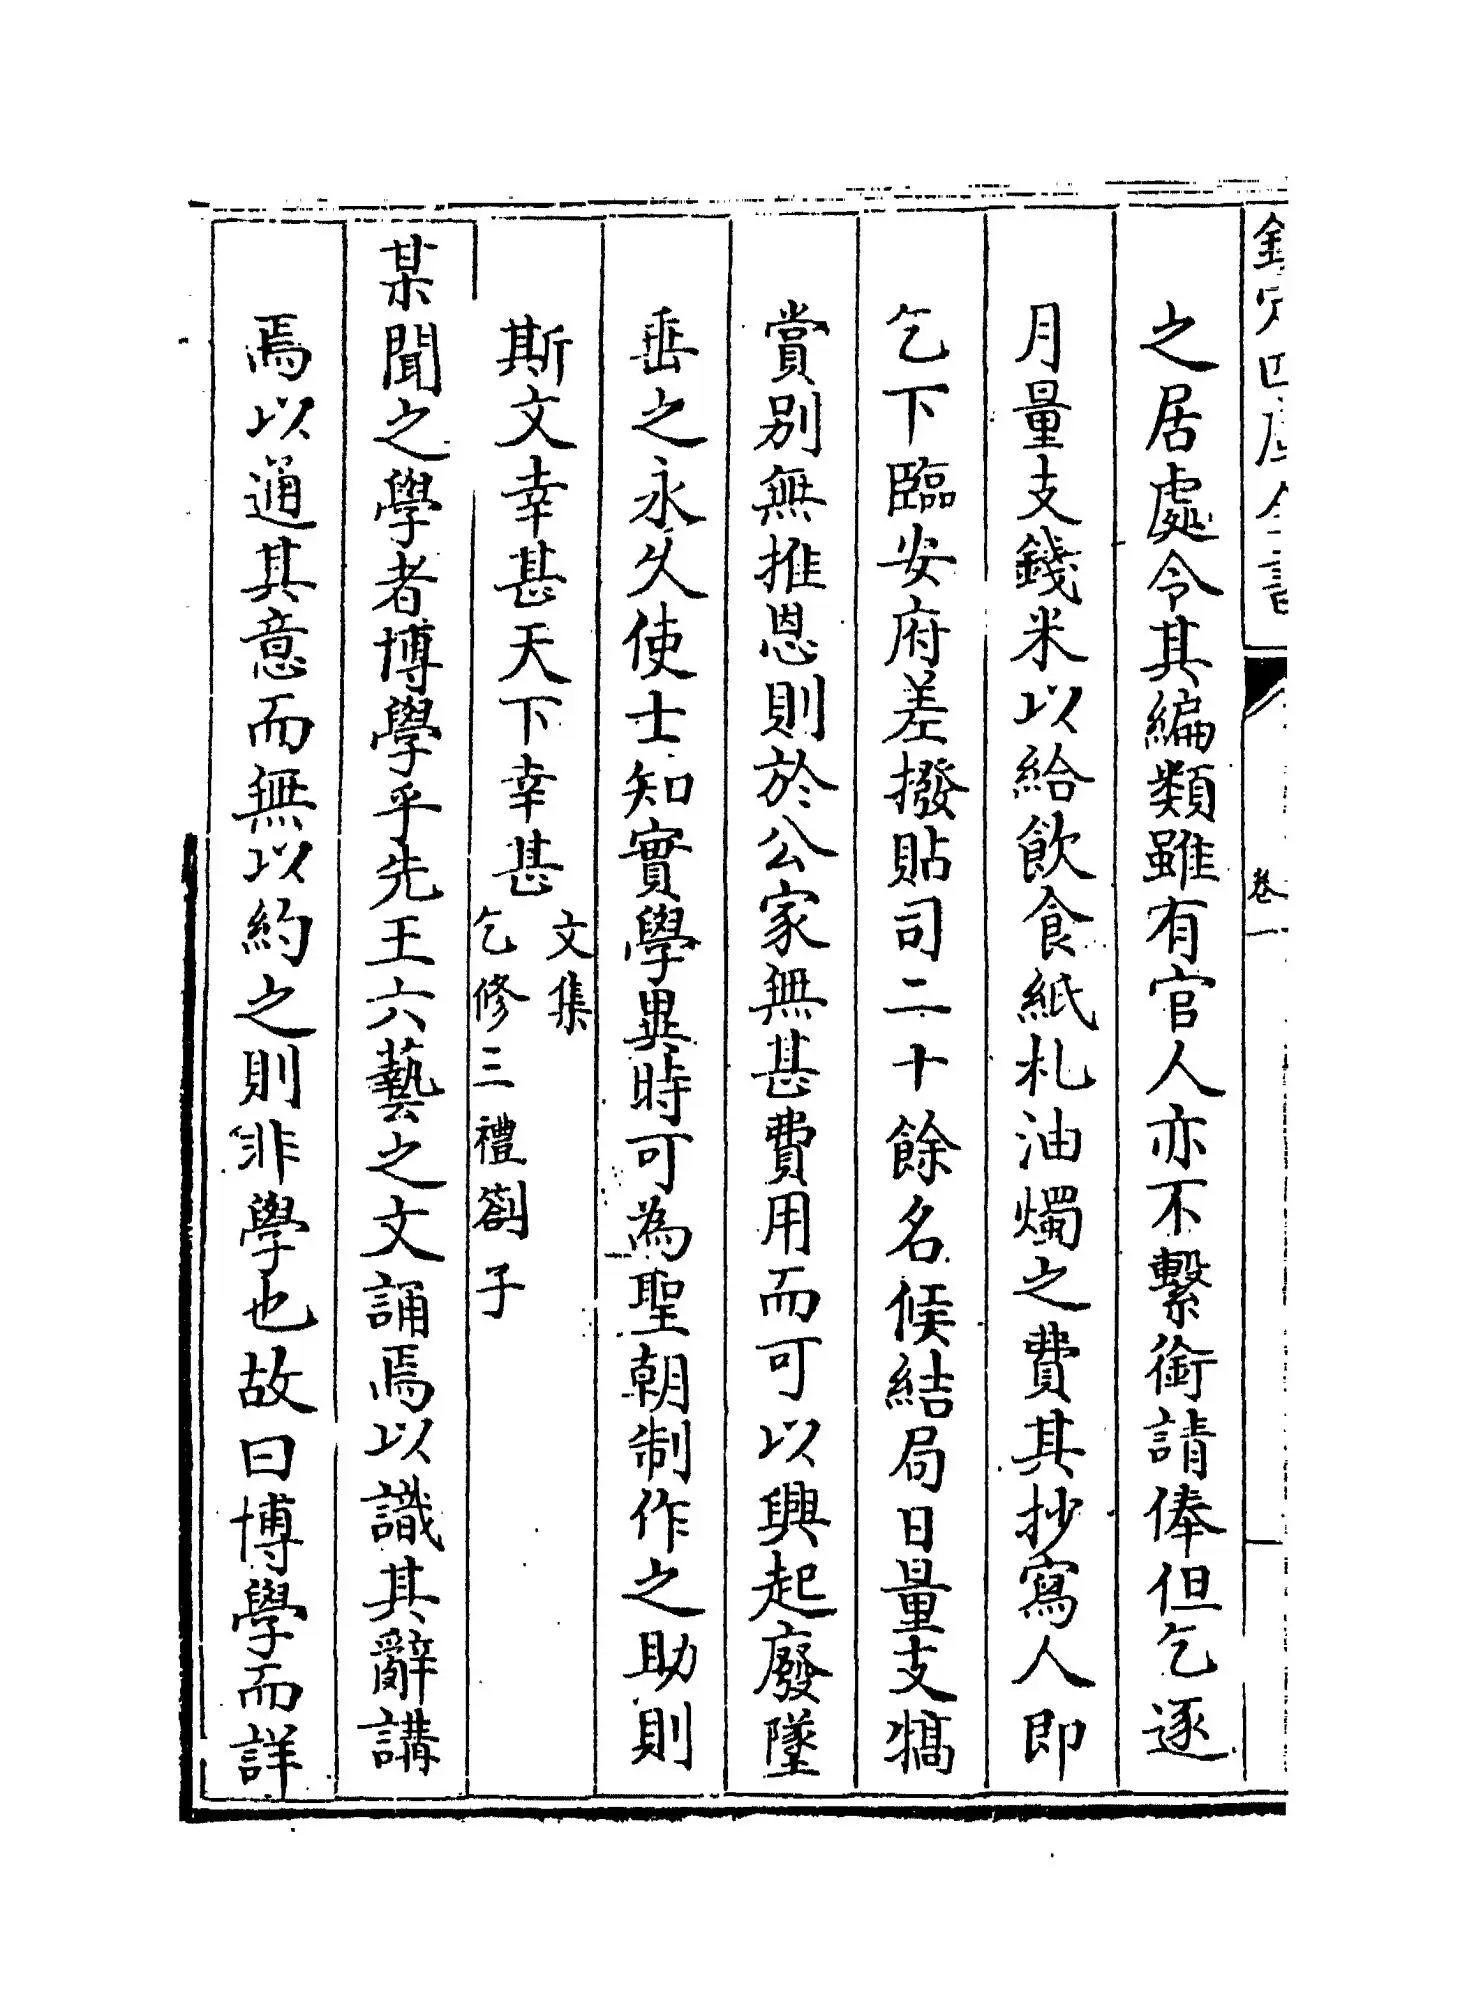 欽定四庫全書
卷一
之居處令其編類雖有官人亦不繫銜請俸但乞逐
月量支錢米以給飲食紙札油燭之費其抄寫人即
乞下臨安府差撥貼司二十餘名候結局日量支犒
賞别無推恩則於公家無甚費用而可以興起廢墜
垂之永久使士知實學異時可為聖朝制作之助則
斯文幸甚天下幸甚文集
乞修三禮劄子
某聞之學者博學乎先王六藝之文誦焉以識其辭講
焉以通其意而無以約之則非學也故曰博學而詳